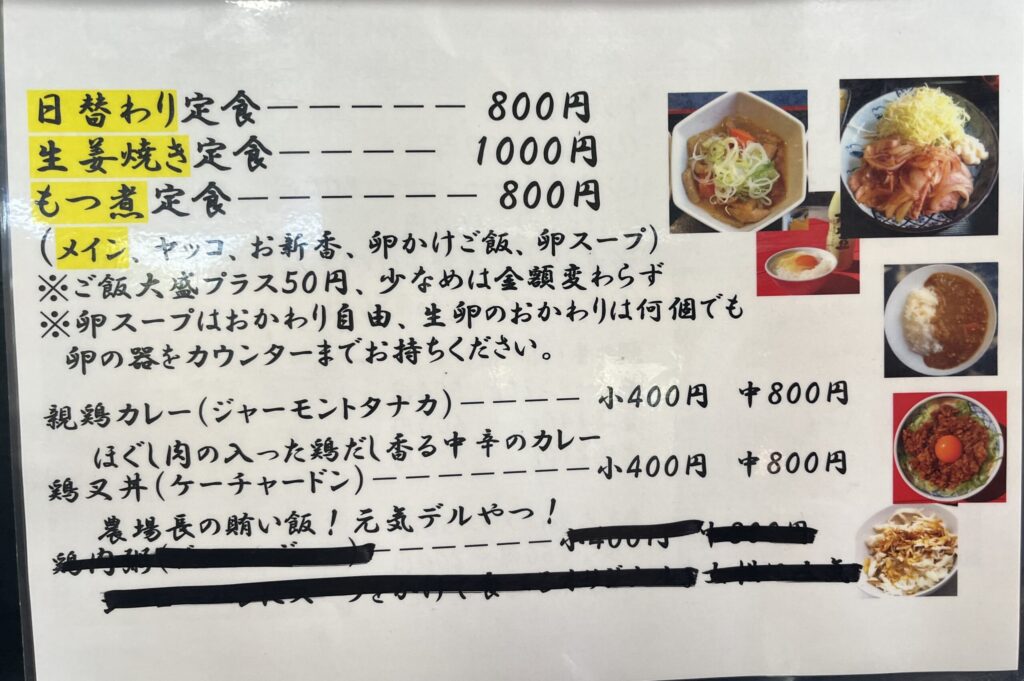 日替わり定食------- 800円
生姜焼き定食---- 1000円
もつ煮定食-------- 800円
(メイン、ヤッコ、お新香、卵かけご飯、卵スープ)
※ご飯大盛プラス50円、少なめは金額変わらず
※卵スープはおかわり自由、生卵のおかわりは何個でも
卵の器をカウンターまでお持ちください。
親鶏カレー(ジャーモントタナカ)----- 小400円 中800円
ほぐし肉の入った鶏だし香る中辛のカレー
鶏叉丼(ケーチャードン)--------- 小400円 中800円
農場長の賄い飯!元気デルやつ!
鶏肉粥